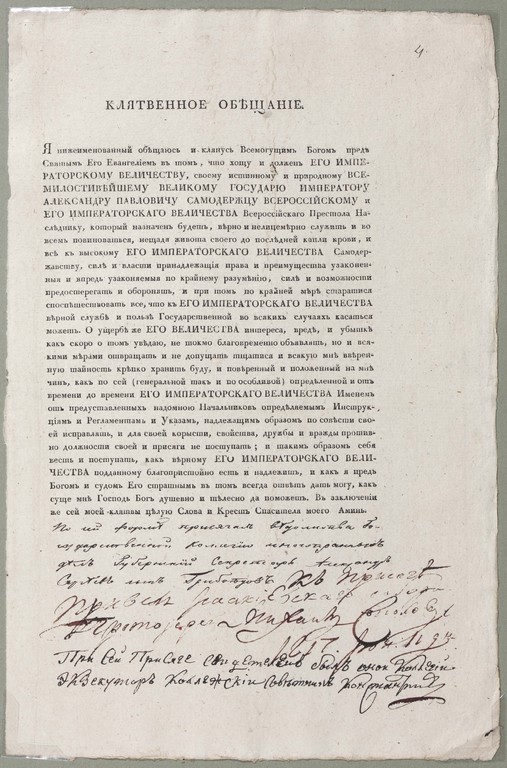 4
КЛЯТВЕННОЕ ОБѢЩАНІЕ.
Я нижеименованный обѣщаюсь и клянусь Всемогущимъ Богомъ предъ
Святымъ Его Евангеліемъ въ томъ, что хощу и долженъ ЕГО ИМПЕ-
РАТОРСКОМУ ВЕЛИЧЕСТВУ, своему истинному и природному ВСЕ-
МИЛОСТИВѢЙШЕМУ ВЕЛИКОМУ ГОСУДАРЮ ИМПЕРАТОРУ
АЛЕКСАНДРУ ПАВЛОВИЧУ САМОДЕРЖЦУ ВСЕРОССІЙСКОМУ и
ЕГО ИМПЕРАТОРСКАГО ВЕЛИЧЕСТВА Всероссійскаго Престола На-
слѣднику, который назначенъ будетъ, вѣрно и нелицемѣрно служить и во
всемъ повиноваться, нещадя живота своего до послѣдней капли крови, и
всѣ къ высокому ЕГО ИМПЕРАТОРСКАГО ВЕЛИЧЕСТВА Самодер-
жавству, силѣ и власти принадлежащія права и преимущества узаконен-
ныя и впредь узаконяемыя по крайнему разумѣнію, силѣ и возможности
предостерегать и оборонять, и при томъ по крайней мѣрѣ стараться
споспѣшествовать все, что къ ЕГО ИМПЕРАТОРСКАГО ВЕЛИЧЕСТВА
вѣрной службѣ и пользѣ Государственной во всякихъ случаяхъ касаться
можетъ. О ущербѣ же ЕГО ВЕЛИЧЕСТВА интереса, вредѣ, и убыткѣ
какъ скоро о томъ увѣдаю, не токмо благовременно объявлять, но и вся-
кими мѣрами отвращать и не допущать тщатися и всякую мнѣ ввѣрен-
ную тайность крѣпко хранить буду, и повѣренный и положенный на мнѣ
чинъ, какъ по сей (генеральной такъ и по особливой) опредѣленной и отъ
времени до времени ЕГО ИМПЕРАТОРСКАГО ВЕЛИЧЕСТВА Именемъ
отъ предуставленныхъ надомною Начальниковъ опредѣляемымъ Инструк-
ціямъ и Регламентамъ и Указамъ, надлежащимъ образомъ по совѣсти сво-
ей исправлять, и для своей корысти, свойства, дружбы и вражды против-
но должности своей и присяги не поступать; и такимъ образомъ себя
весть и поступать, какъ вѣрному ЕГО ИМПЕРАТОРСКАГО ВЕЛИ-
ЧЕСТВА подданному благопристойно есть и надлежитъ, и какъ я предъ
Богомъ и судомъ Его страшнымъ въ томъ всегда отвѣтъ дать могу, какъ
суще мнѣ Господь Богъ душевно и тѣлесно да поможетъ. Въ заключеніи
же сей моей клятвы цѣлую Слова и Крестъ Спасителя моего Аминь.
По сей формѣ присягалъ вѣдомства Го-
сударственной Коллегіи иностранныхъ
дѣлъ Губернскій Секретарь Александръ
Сергѣевъ сынъ Грибоѣдовъ. Къ присягѣ
привелъ Исаакіевскаго
Протоіерей Михаилъ
1817
При сей Присягѣ свидѣтелемъ былъ оной Коллегіи
Экзекуторъ Коллежскій Совѣтникъ Константинъ